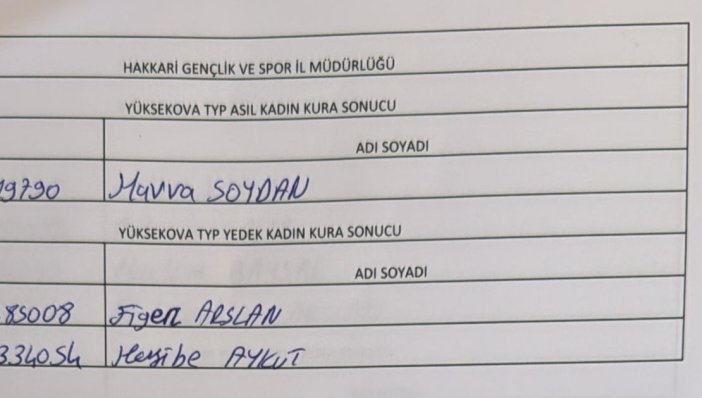 HAKKARİ GENÇLİK VE SPOR İL MÜDÜRLÜĞÜ
YÜKSEKOVA TYP ASIL KADIN KURA SONUCU
ADI SOYADI
19790 Havva SOYDAN
YÜKSEKOVA TYP YEDEK KADIN KURA SONUCU
ADI SOYADI
85008 Figen ARSLAN
334054 Heybe AYKUT